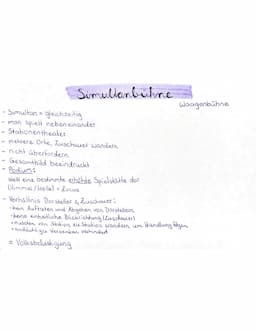 Simultanbühne
Waagenbühne
- Simultan = gleichzeitig
- man spielt nebeneinander
- Stationentheater
- mehrere Orte, Zuschauer wandern
- nicht überfordern
- Gesamtbild beeindruckt
- Podium:
stellt eine bestimmte erhöhte Spielstätte dar
(Himmel/Hölle) = Locus
- Verhältnis Darsteller & Zuschauer:
- kein Auftreten und Abgehen von Darstellern
- keine einheitliche Blickrichtung (Zuschauer)
- mussten von Station zu Station wandern, um Handlung folgen
- andächtiges Versenken verhindert
= Volksbelustigung